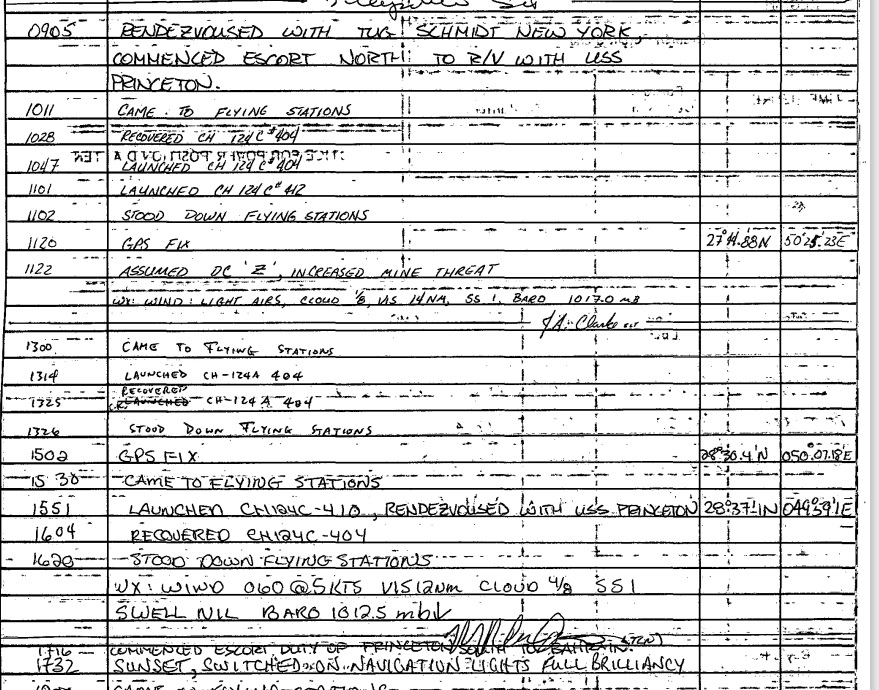 0905 RENDEZVOUSED WITH TUG SCHMIDT NEW YORK,
COMMENCED ESCORT NORTH TO R/V WITH USS
PRINCETON.
1011 CAME TO FLYING STATIONS
1028 RECOVERED CH 124 C# 404
1047 LAUNCHED CH 124 C# 404
1101 LAUNCHED CH 124 C# 412
1102 STOOD DOWN FLYING STATIONS
1120 GPS FIX 50°
1122 ASSUMED DC 'Z', INCREASED MINE THREAT
WX: WIND: LIGHT AIRS, CLOUD 1/8, VIS 14 NM, SS 1, BARO 1017.0 MB
J.A. Clarke
1300 CAME TO FLYING STATIONS
1314 LAUNCHED CH-124A 404
RECOVERED
1325 LAUNCHED CH-124A 404
1326 STOOD DOWN FLYING STATIONS
1502 GPS FIX 28°30.4'N 050°07.18E
1530 CAME TO FLYING STATIONS
1551 LAUNCHED CH124C-410, RENDEZVOUSED WITH USS PRINCETON 28°37.1N 049°59.1E
1604 RECOVERED CH124C-404
1620 STOOD DOWN FLYING STATIONS
WX: WIND 060@5KTS VIS 12nm CLOUD 4/8 SS1
SWELL NIL BARO 1012.5 mb↓
1716 COMMENCED ESCORT DUTY OF PRINCETON SOUTH TO BAHRAIN.
1732 SUNSET, SWITCHED ON NAVIGATION LIGHTS FULL BRILLIANCY